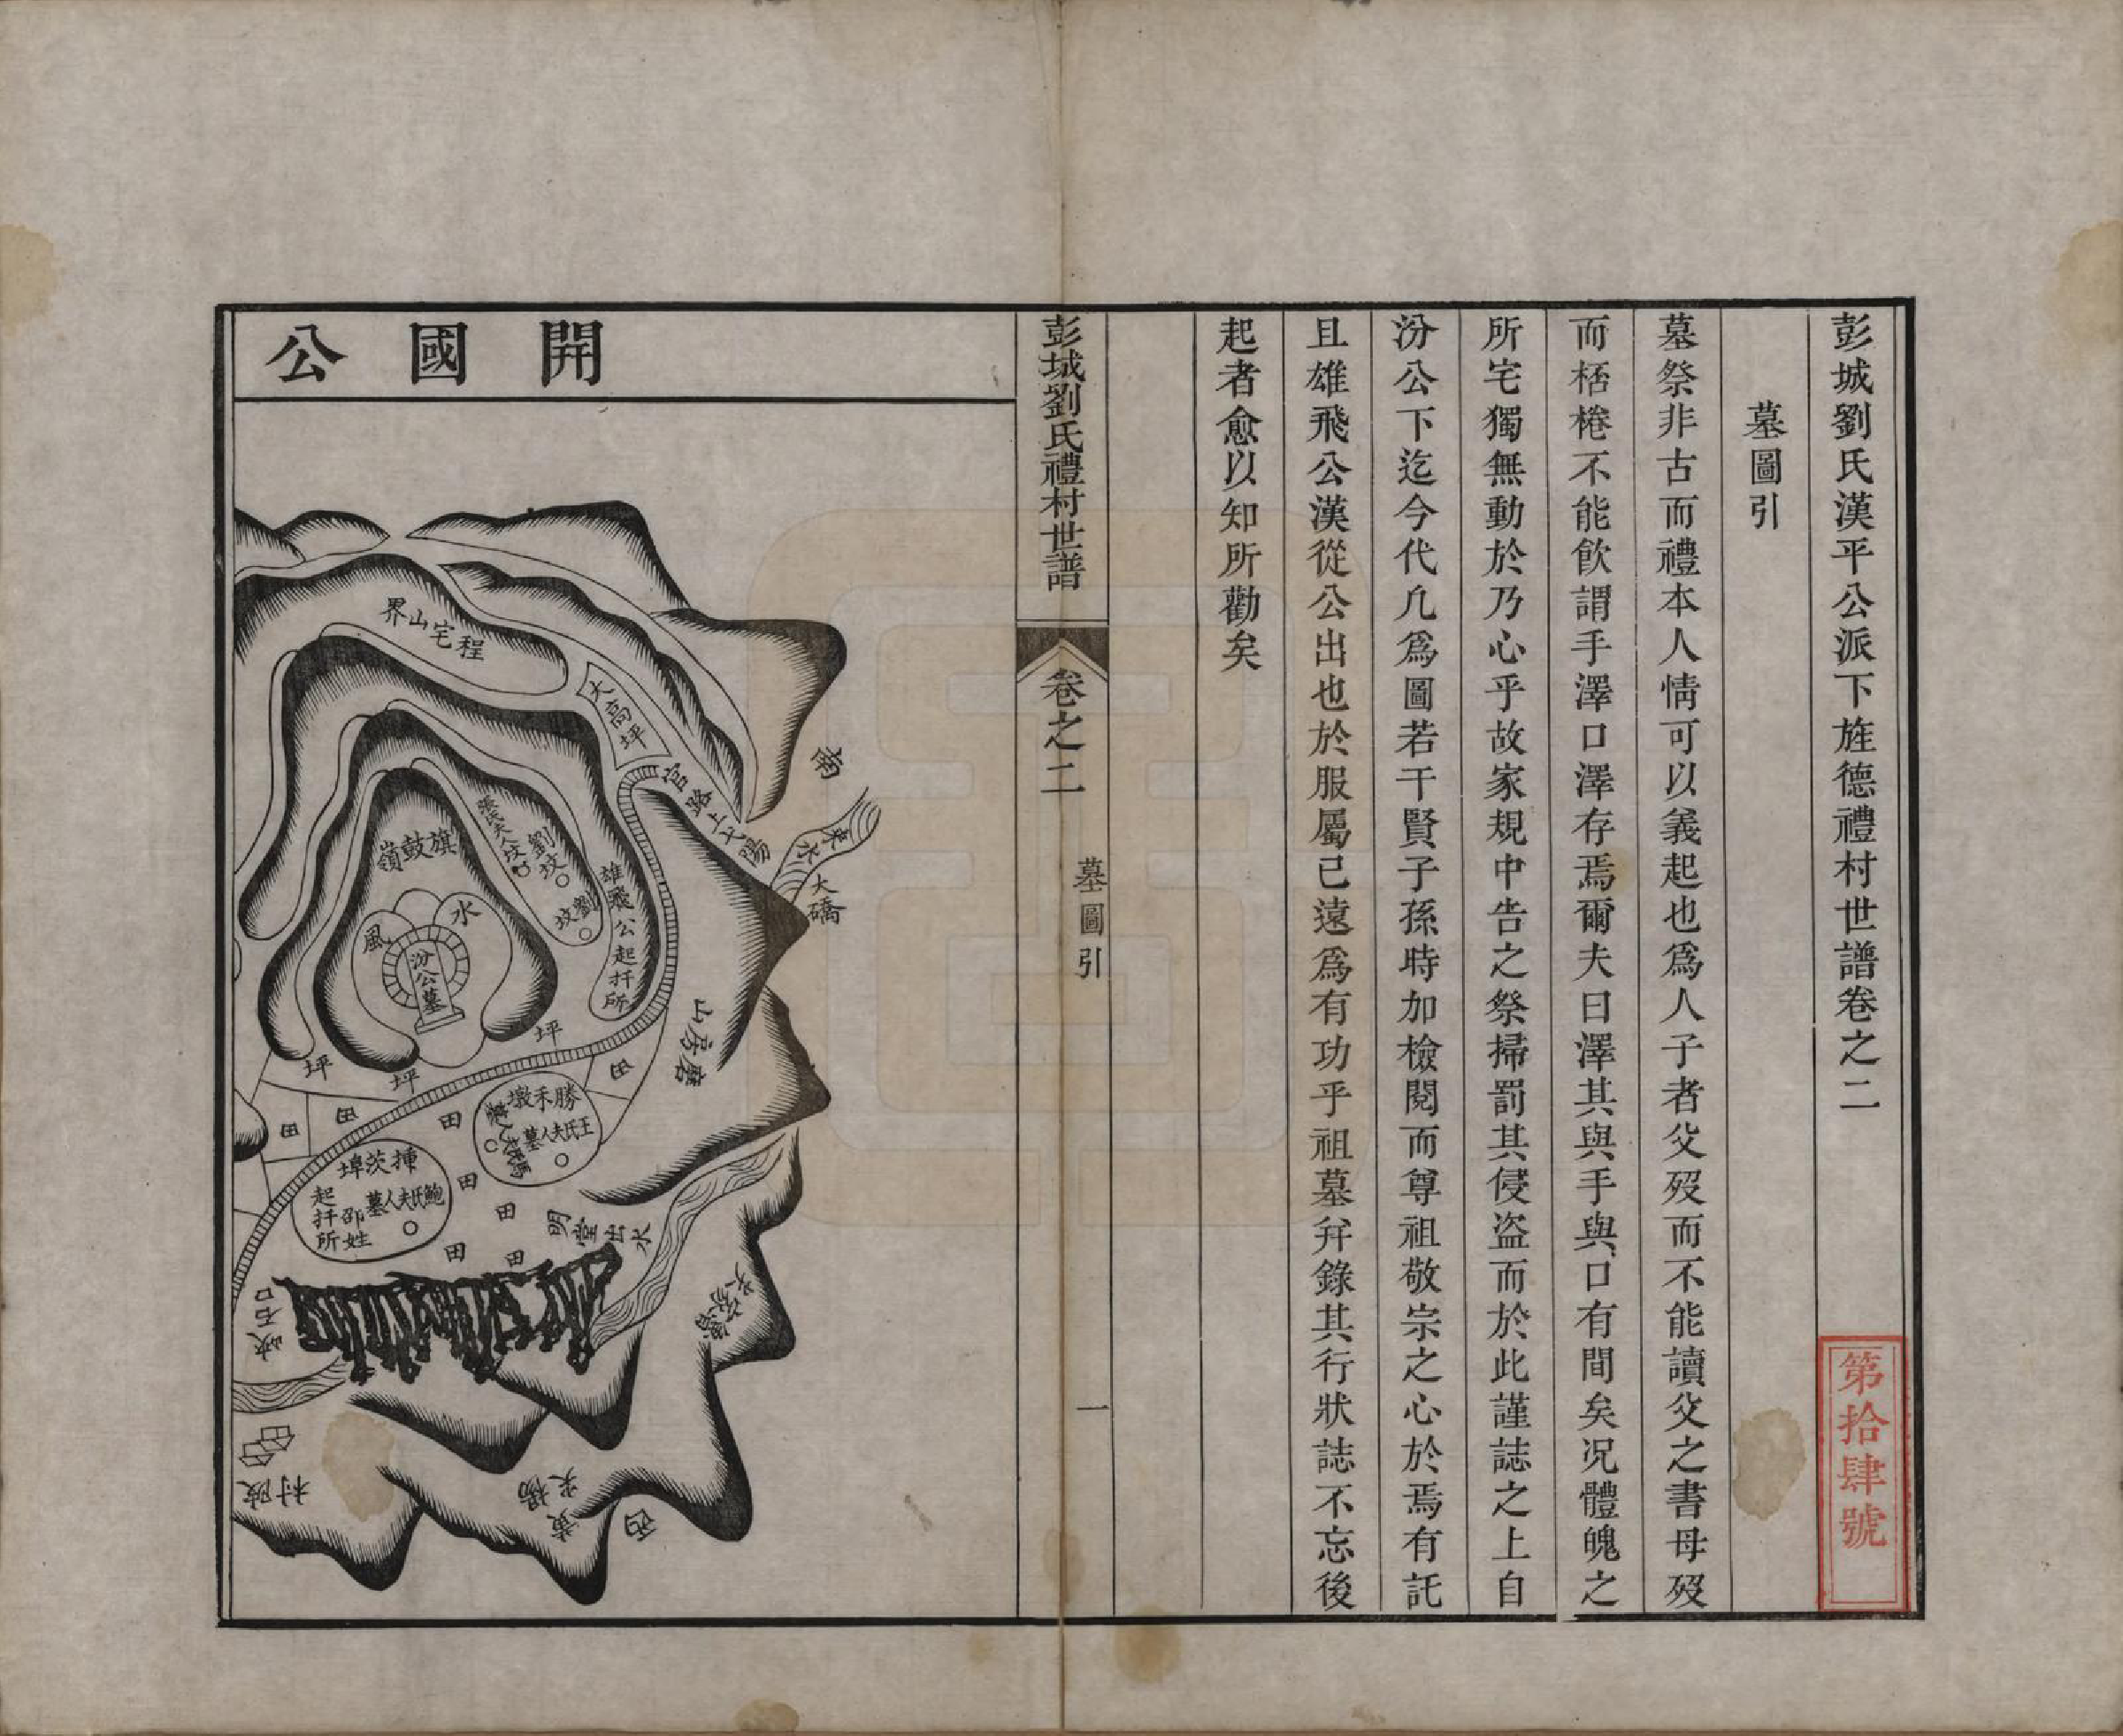 彭城劉氏漢平公派下旌德禮村世譜卷之二
墓圖引
墓祭非古而禮本人情可以義起也爲人子者父歿而不能讀父之書母歿
而桮棬不能飲謂手澤口澤存焉爾夫曰澤其與手與口有間矣况體魄之
所宅獨無動於乃心乎故家規中告之祭掃罰其侵盜而於此謹誌之上自
汾公下迄今代凡爲圖若干賢子孫時加檢閱而尊祖敬宗之心於焉有託
且雄飛公漢從公出也於服屬已遠爲有功乎祖墓并錄其行狀誌不忘後
起者愈以知所勸矣
第拾肆號
彭城劉氏禮村世譜
卷之二
墓圖引
一
開國公
程宅山界
大高坪
官路上弋陽
南
東水
大礄
旗鼓嶺
張氏夫人坟
劉坟
劉坟
雄飛公起扦所
水
風
汾公墓
坪
坪
坪
磨房山
田
田
田
田
勝禾墩
王氏夫人墓
馮氏夫人墓
田
田
田
田
埂茨埠
鮑氏夫人墓
邵姓
起扦所
明堂出水
石口
村陂
西